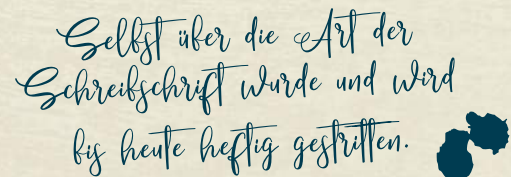 Selbst über die Art der
Schreibschrift wurde und wird
bis heute heftig gestritten.